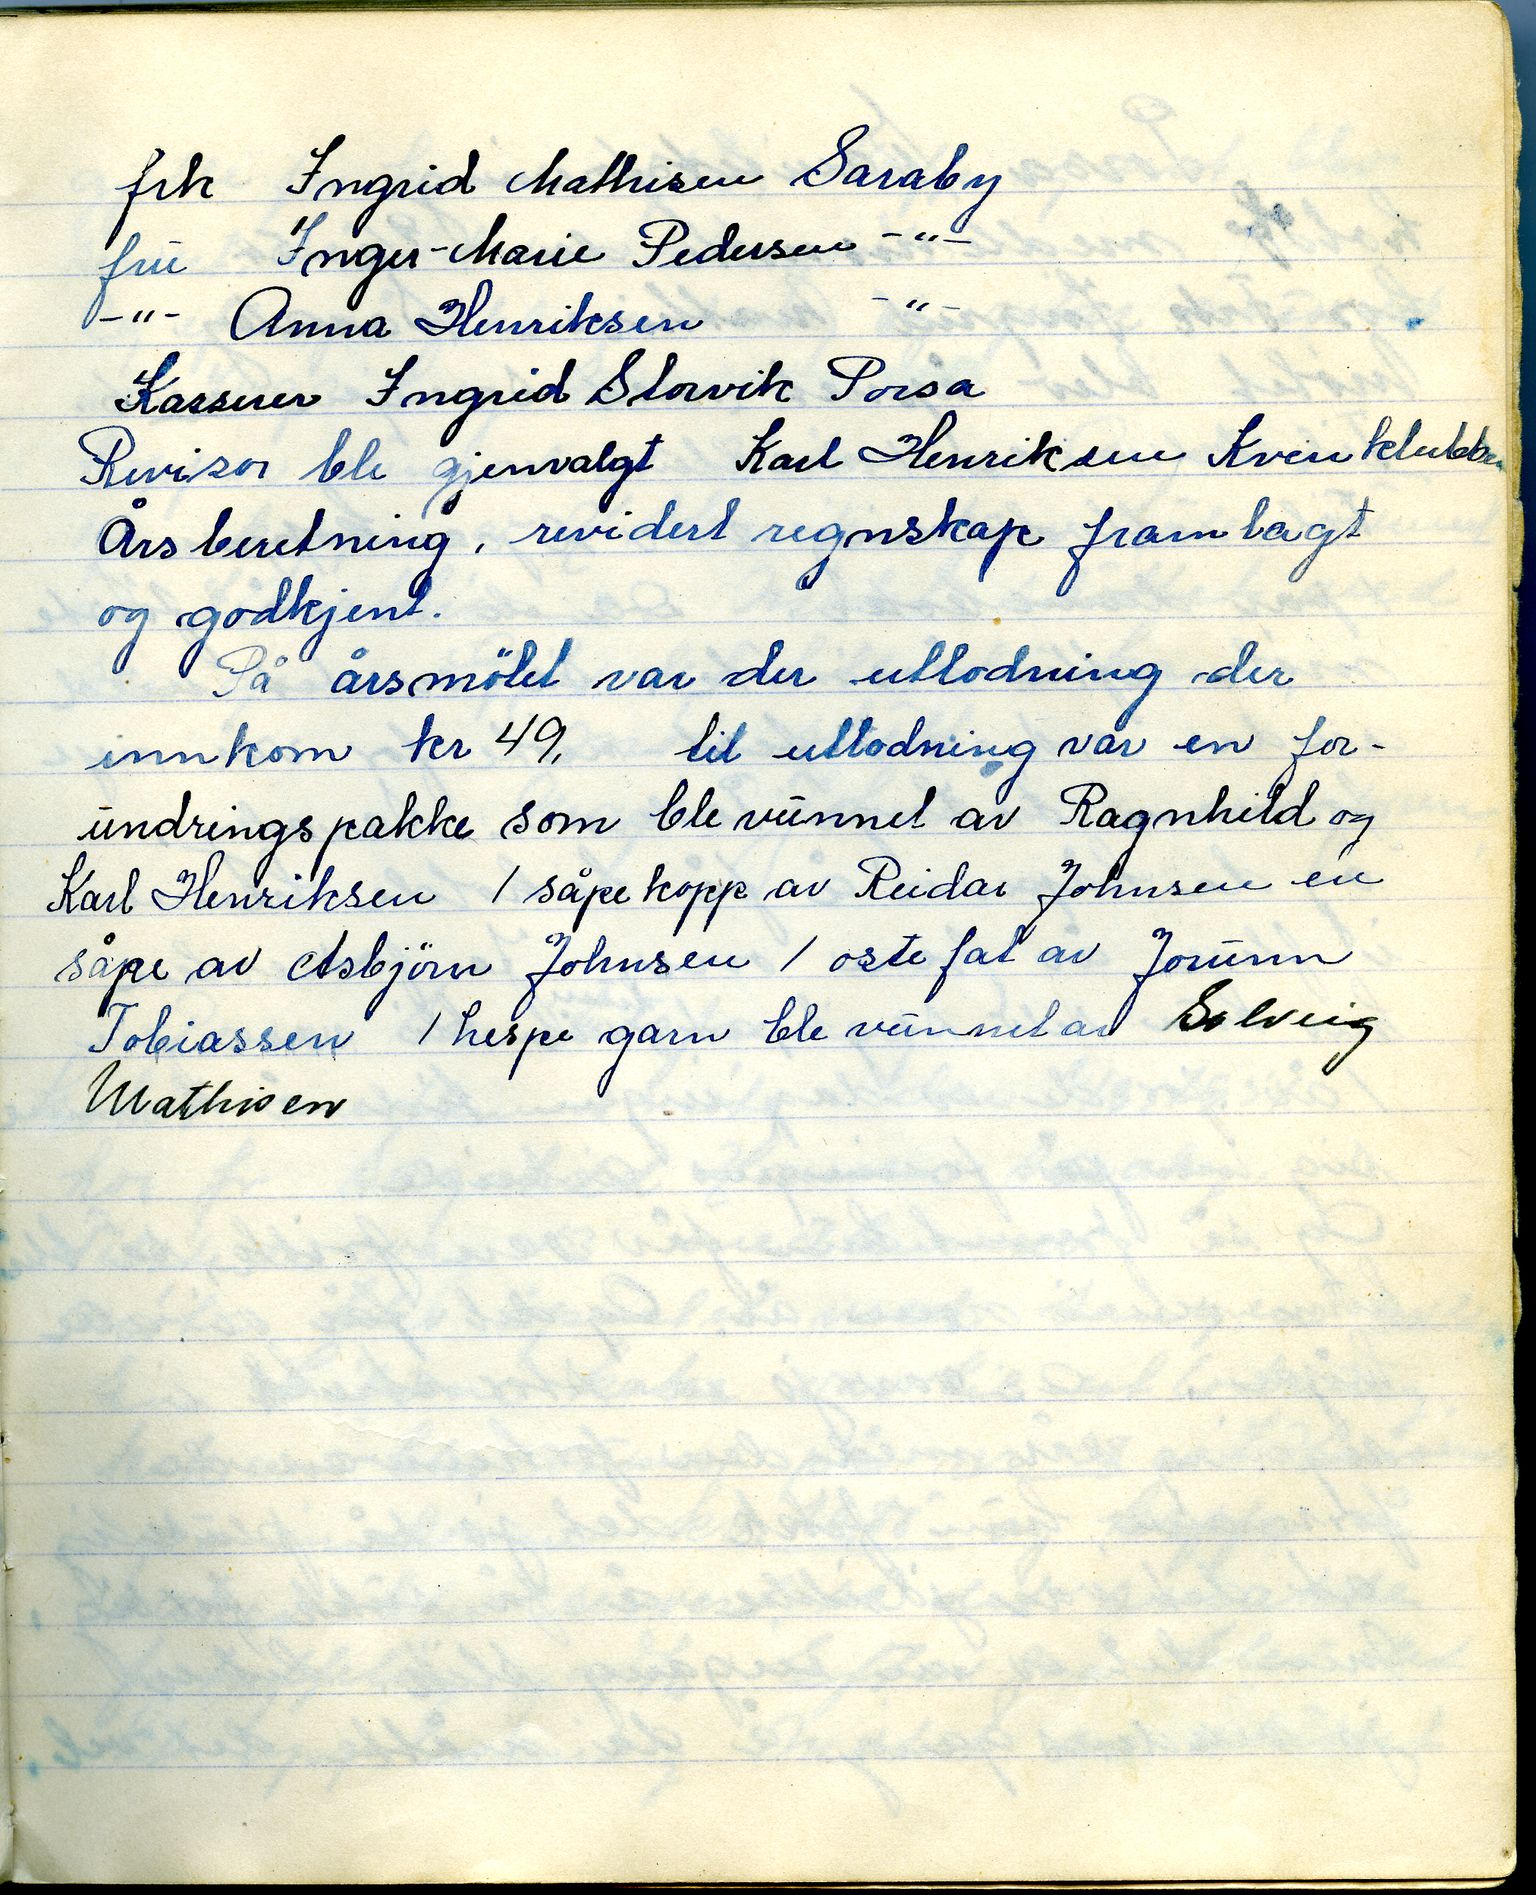 frk Ingrid Mathisen Saraby
fru Inger-Marie Pedersen -"-
-"- Anna Henriksen -"-
Kasserer Ingrid Storvik Porsa
Revisor ble gjenvalgt Karl Henriksen Kvenklubben
Årsberetning, revidert regnskap framlagt
og godkjent.
På årsmötet var der utlodning der
innkom kr 49, til utlodning var en for-
undringspakke som ble vunnet av Ragnhild og
Karl Henriksen 1 såpekopp av Reidar Johnsen en
såpe av Asbjörn Johnsen 1 ostefat av Jorunn
Tobiassen 1 hespe garn ble vunnet av Solveig
Mathisen